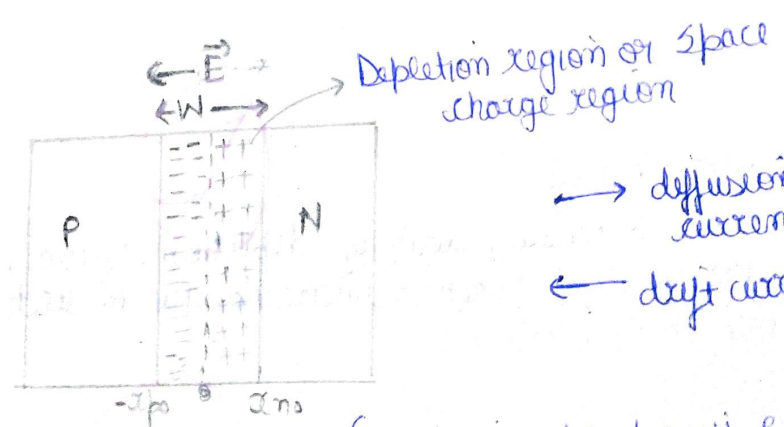 E
W
Depletion region or Space
charge region
P
N
deffusion
curren
drift curr
-xpo
0
xno